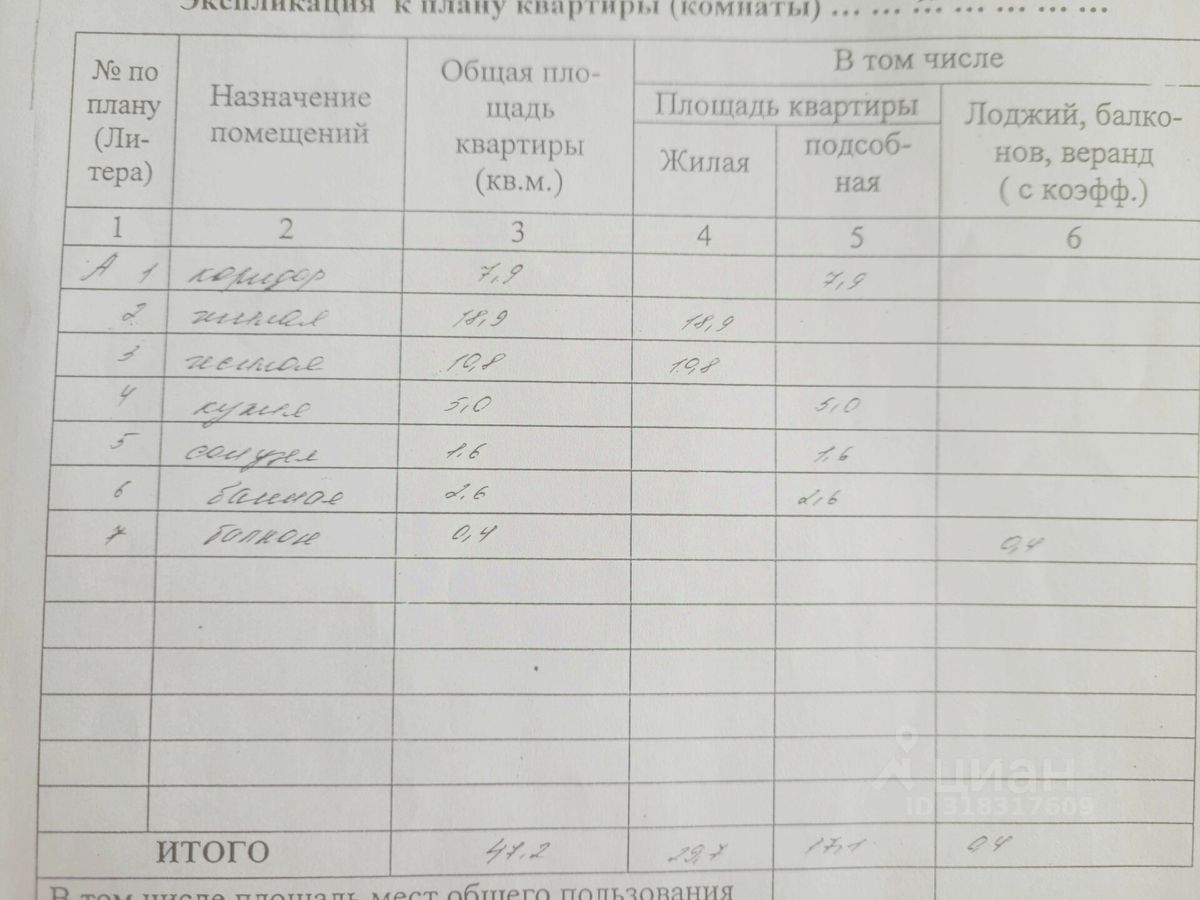 Экспликация к плану квартиры (комнаты) ... ... ... ... ... ... ...
№ по плану (Ли- тера)
Назначение помещений
Общая пло- щадь квартиры (кв.м.)
В том числе
Площадь квартиры
Жилая
подсоб- ная
Лоджий, балко- нов, веранд ( с коэфф.)
1 2 3 4 5 6
А 1 коридор 7,9 7,9
2 жилая 18,9 18,9
3 жилая 10,8 10,8
4 кухня 5,0 5,0
5 санузел 1.6 1.6
6 ванная 2,6 2,6
7 балкон 0,4 0,4
ИТОГО 47,2 29,7 17,1 0,4
В том числе площадь мест общего пользования
циан
ID 318317609